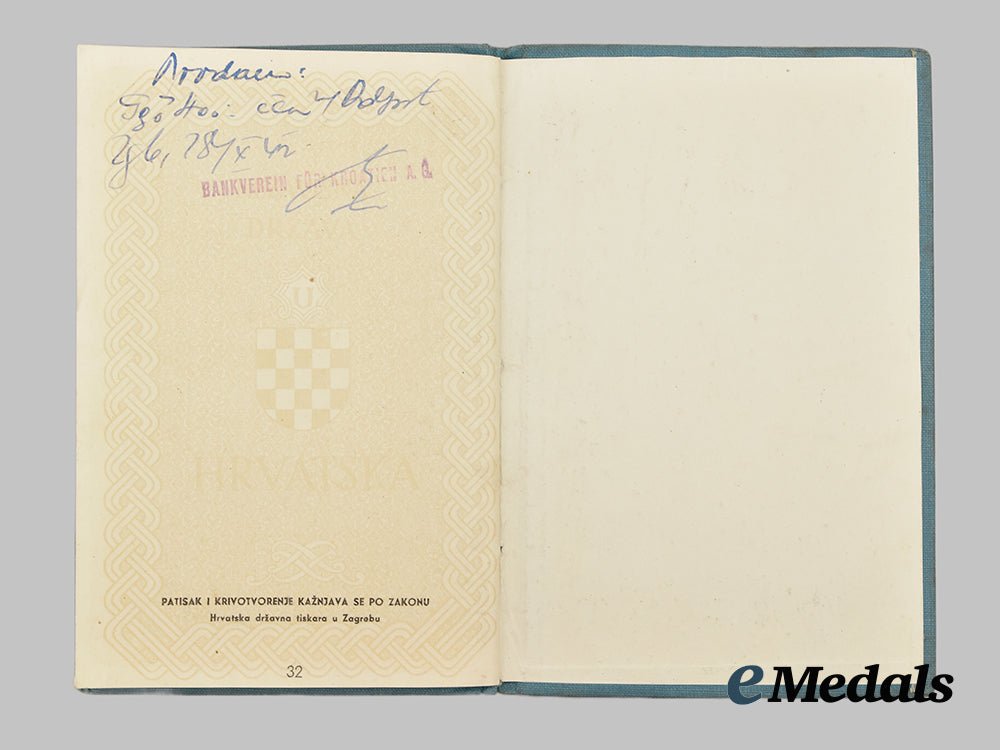 Prodano:
BANKVEREIN FÜR KROATIEN A. G.
U
HRVATSKA
PATISAK I KRIVOTVORENJE KAŽNJAVA SE PO ZAKONU
Hrvatska državna tiskara u Zagrebu
32
eMedals